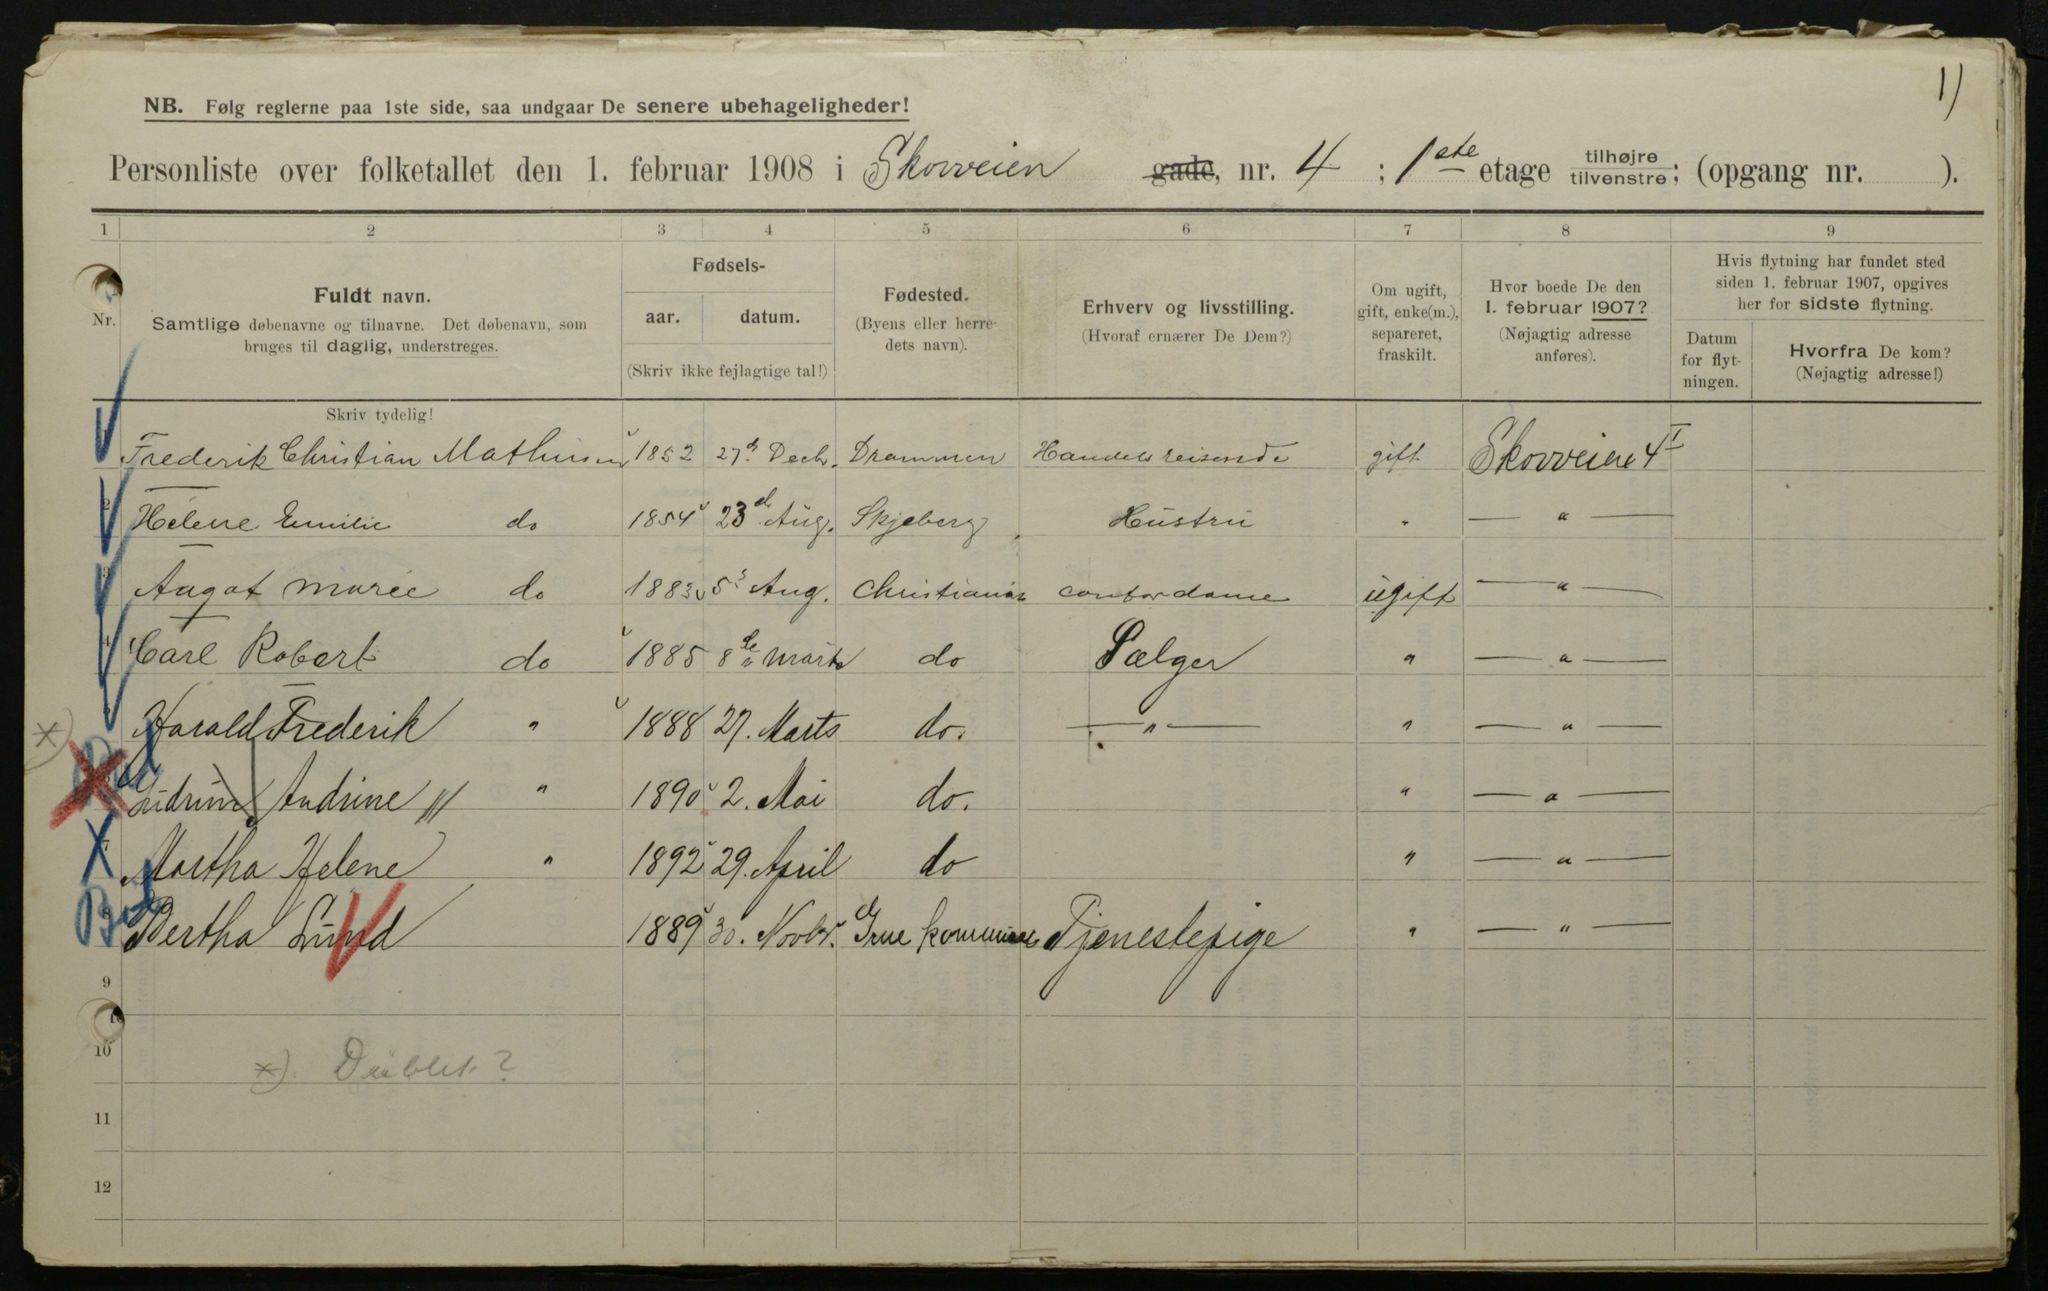 1)
NB. Følg reglerne paa 1ste side, saa undgaar De senere ubehageligheder!
Personliste over folketallet den 1. februar 1908 i Skovveien gade, nr. 4 ; 1ste etage tilhøjre tilvenstre; (opgang nr. ).
1 2 3 4 5 6 7 8 9
Nr.
Fuldt navn.
Samtlige døbenavne og tilnavne. Det døbenavn, som
bruges til daglig, understreges.
Skriv tydelig!
Fødsels-
aar. datum.
(Skriv ikke fejlagtige tal!)
Fødested.
(Byens eller herre-
dets navn).
Erhverv og livsstilling.
(Hvoraf ernærer De Dem?)
Om ugift,
gift, enke(m.),
separeret,
fraskilt.
Hvor boede De den
1. februar 1907?
(Nøjagtig adresse
anføres).
Hvis flytning har fundet sted
siden 1. februar 1907, opgives
her for sidste flytning.
Datum
for flyt-
ningen.
Hvorfra De kom?
(Nøjagtig adresse!)
Frederik Christian Mathiesen 1852 27d Decb. Drammen Handelsreisende gift Skovveien 4 I
2 Helene Emilie do 1854 23d Aug. Skjeberg Hustru " — " —
3 Aagot Marie do 1883 5 Aug. Christiania contordame ugift — " —
4 Carl Robert do 1885 8de Marts do Sælger " — " —
5 Harald Frederik " 1888 27. Marts do. — " — " — " —
x) Gudrun Andrine " 1890 2. Mai do. " — " —
7 Martha Helene " 1892 29. April do " — " —
8 Bertha Lund 1889 30. Novbr. Grue kommune Tjenestepige " — " —
9
10
x). Dublet?
11
12